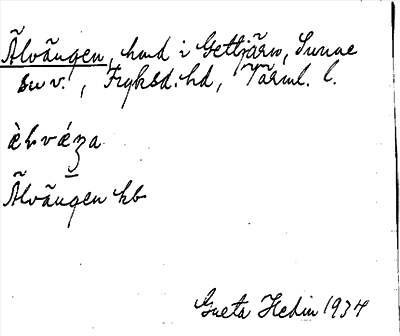 Älvängen, hmd i Gettjärn, Sunne
sn v., Fryksd. hd, Värml. l.
Älvängen kb
Greta Hedin 1934